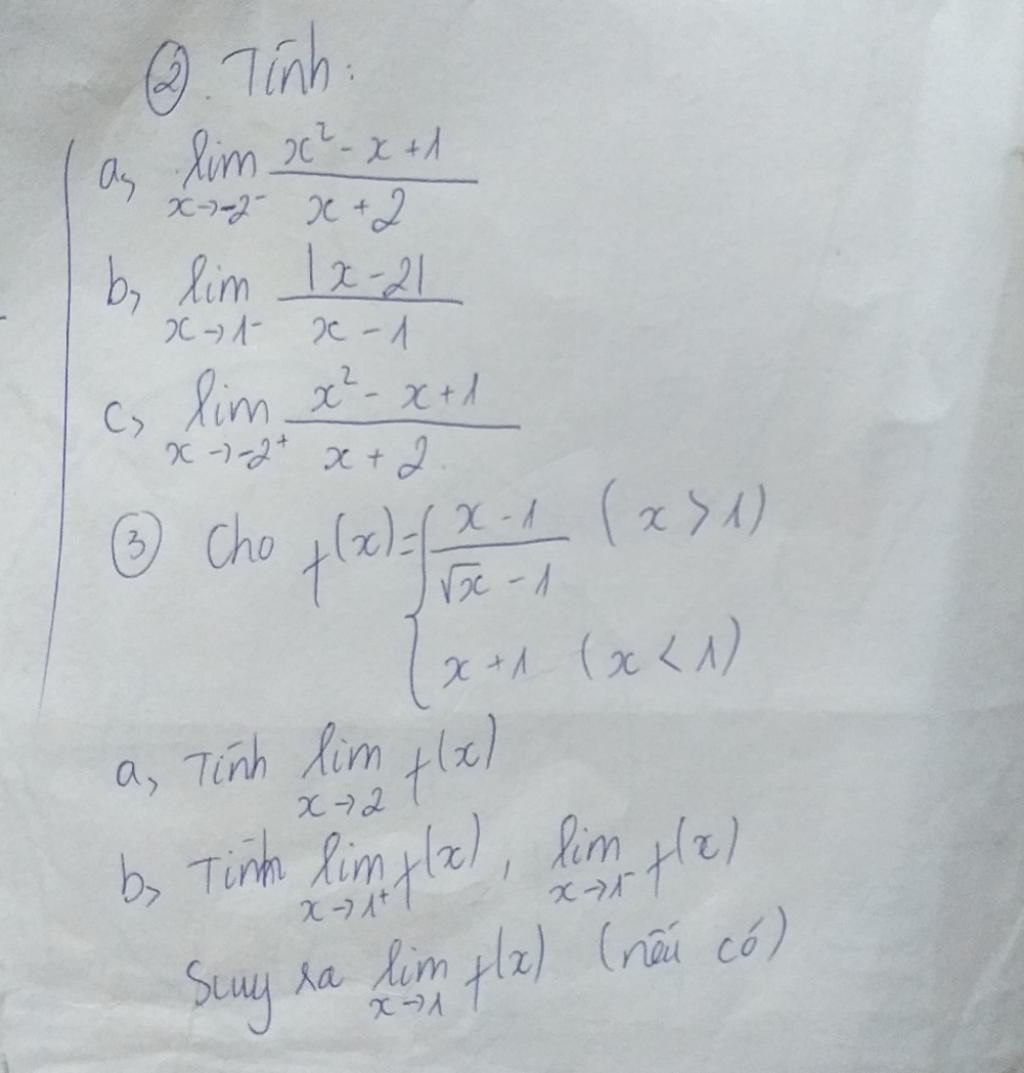 ②. Tính:
a, lim x→-2⁻ (x² - x + 1)/(x + 2)
b, lim x→1⁻ |x - 2|/(x - 1)
c, lim x→-2⁺ (x² - x + 1)/(x + 2)
③ Cho f(x) = { (x - 1)/(√x - 1) (x > 1)
x + 1 (x < 1)
a, Tính lim x→2 f(x)
b, Tính lim x→1⁺ f(x), lim x→1⁻ f(x)
Suy ra lim x→1 f(x) (nếu có)